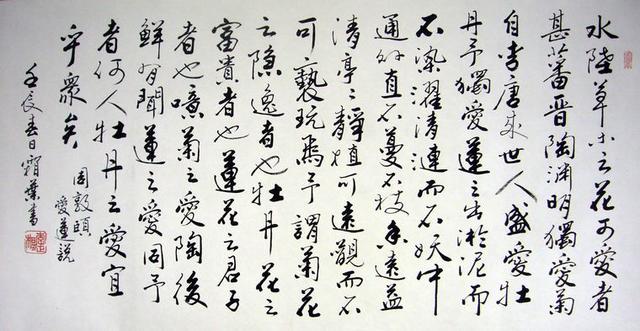 水陸草木之花可愛者
甚蕃晉陶渊明獨愛菊
自李唐来世人盛愛牡
丹予獨愛蓮之出淤泥而
不染濯清漣而不妖中
通外直不蔓不枝香遠益
清亭々靜植可遠觀而不
可褻玩焉予謂菊花
之隐逸者也牡丹花之
富貴者也蓮花之君子
者也噫菊之愛陶後
鮮有聞蓮之愛同予
者何人牡丹之愛宜
乎衆矣
周敦頤
愛蓮説
壬辰春日霜葉書